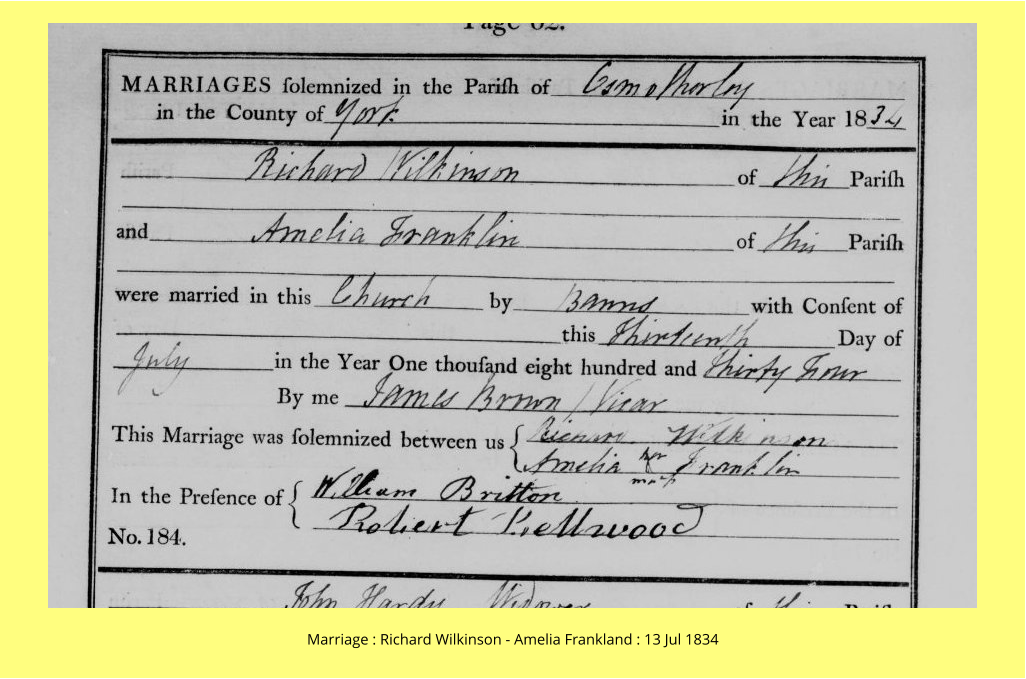 Page 62.
MARRIAGES ſolemnized in the Pariſh of Osmotherley
in the County of York in the Year 1834
Richard Wilkinson of this Pariſh
and Amelia Franklin of this Pariſh
were married in this Church by Banns with Conſent of
this thirteenth Day of
July in the Year One thouſand eight hundred and thirty four
By me James Brown Vicar
This Marriage was ſolemnized between us { Richard Wilkinson
Amelia her Franklin
mark
In the Preſence of { William Britton
Robert Kellwood
No. 184.
John Hardy Widower of this Pariſh
Marriage : Richard Wilkinson - Amelia Frankland : 13 Jul 1834